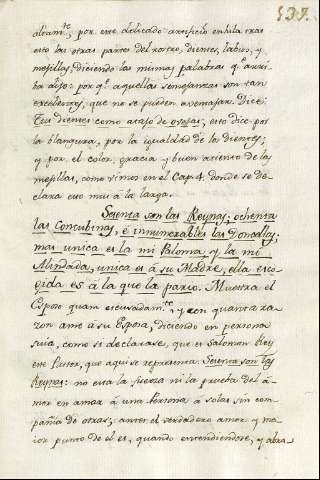 537.
altam.te, por este delicado artificio enhila tras
esto las otras partes del rostro, dientes, labios, y
mexillas, diciendo las mismas palabras q.e arri-
ba dixo: por q.e aquellas semejanzas son tan
excelentes, que no se pueden aventajar. Dice:
Tus dientes como atajo de ovejas, esto dice por
la blancura, por la igualdad de los dientes;
y por el color, gracia y buen asiento de las
mexillas, como vimos en el Cap. 4. donde se de-
clara esto mui à la larga.
Sesenta son las Reynas, ochenta
las Concubinas, è innumerables las Doncellas,
mas unica es la mi Paloma, y la mi
Alindada, unica es à su Madre, ella esco-
gida es à la que la pario. Muestra el
Esposo quam escusadam.te, y con quanta ra-
zon ame à su Esposa, diciendo en persona
suia, como se declarase, que es Salomon Rey
este Pastor, que aqui se representa. Sesenta son las
Reynas: no esta la fuerza ni la prueba del à-
mor en amar à una Persona à solas sin com-
pañia de otras; antes el verdadero amor y ma-
ior punto de el es, quando entendiendose, y abra-